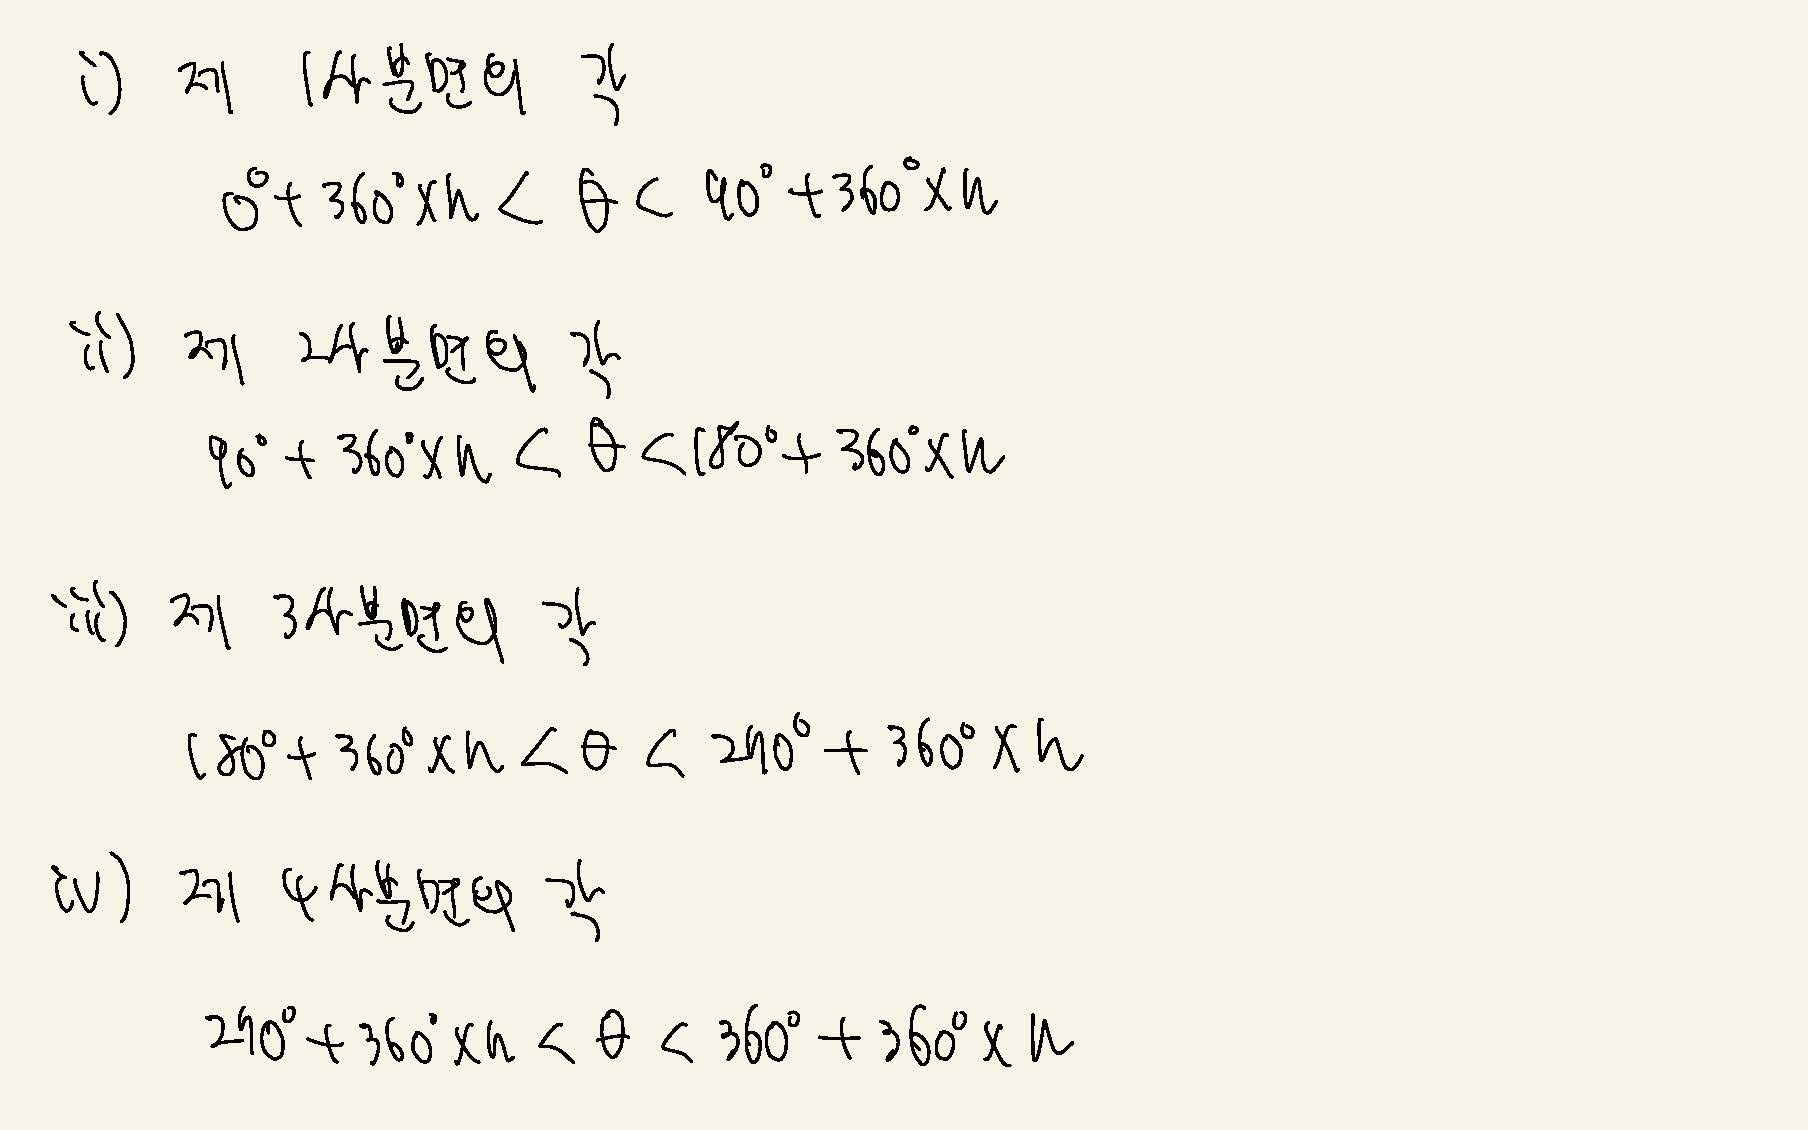 i) 제 1사분면의 각
0°+360°×n < θ < 90°+360°×n
ii) 제 2사분면의 각
90°+360°×n < θ < 180°+360°×n
iii) 제 3사분면의 각
180°+360°×n < θ < 270°+360°×n
iv) 제 4사분면의 각
270°+360°×n < θ < 360°+360°×n